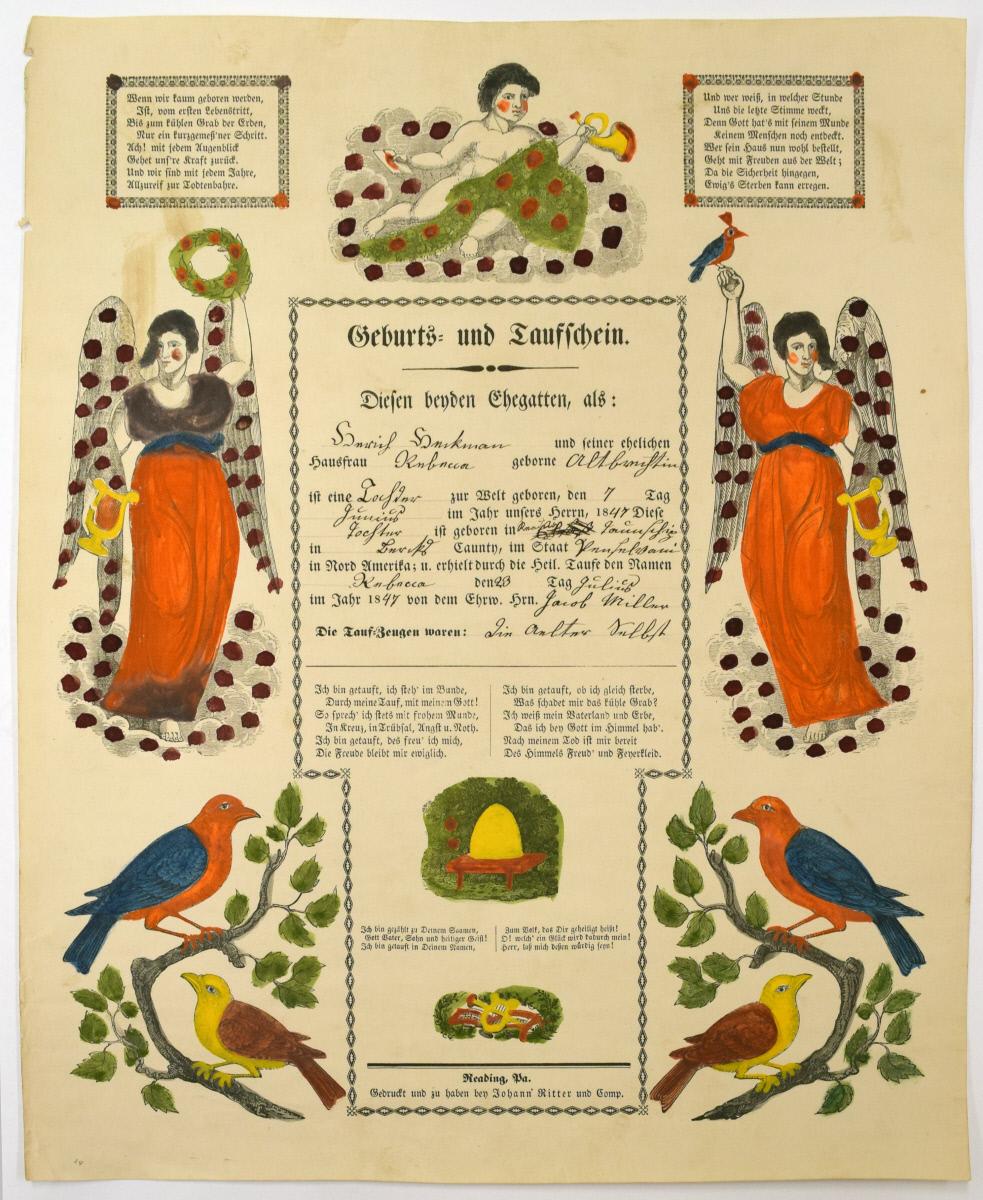 Wenn wir kaum geboren werden,
Ist, vom ersten Lebenstritt,
Bis zum kühlen Grab der Erden,
Nur ein kurzgemeß'ner Schritt.
Ach! mit jedem Augenblick
Gehet uns're Kraft zurück.
Und wir sind mit jedem Jahre,
Allzureif zur Todtenbahre.
Und wer weiß, in welcher Stunde
Uns die letzte Stimme weckt,
Denn Gott hat's mit seinem Munde
Keinem Menschen noch entdeckt.
Wer sein Haus nun wohl bestellt,
Geht mit Freuden aus der Welt;
Da die Sicherheit hingegen,
Ewig's Sterben kann erregen.
Geburts- und Taufschein.
Diesen beyden Ehegatten, als:
Heckman und seiner ehelichen
Hausfrau Rebecca geborne Altbrechtin
ist eine Tochter zur Welt geboren, den 7 Tag
Junius im Jahr unsers Herrn, 1847 Diese
Tochter ist geboren in Taunschip
in Bercks Caunty, im Staat Penselvani
in Nord Amerika; u. erhielt durch die Heil. Taufe den Namen
Rebecca den 23 Tag Julius
im Jahr 1847 von dem Ehrw. Hrn. Jacob Miller
Die Tauf-Zeugen waren: Die Aelter Selbst
Ich bin getauft, ich steh' im Bunde,
Durch meine Tauf, mit meinem Gott!
So sprech' ich stets mit frohem Munde,
In Kreuz, in Trübsal, Angst u. Noth.
Ich bin getauft, des freu' ich mich,
Die Freude bleibt mir ewiglich.
Ich bin getauft, ob ich gleich sterbe,
Was schadet mir das kühle Grab?
Ich weiß mein Vaterland und Erbe,
Das ich bey Gott im Himmel hab'.
Nach meinem Tod ist mir bereit
Des Himmels Freud' und Feyerkleid.
Ich bin gezählt zu Deinem Saamen,
Gott Vater, Sohn und heiliger Geist!
Ich bin getauft in Deinem Namen,
Zum Volk, das Dir geheiligt heißt!
O! welch' ein Glück wird dadurch mein!
Herr, laß mich dessen würdig seyn!
Reading, Pa.
Gedruckt und zu haben bey Johann Ritter und Comp.